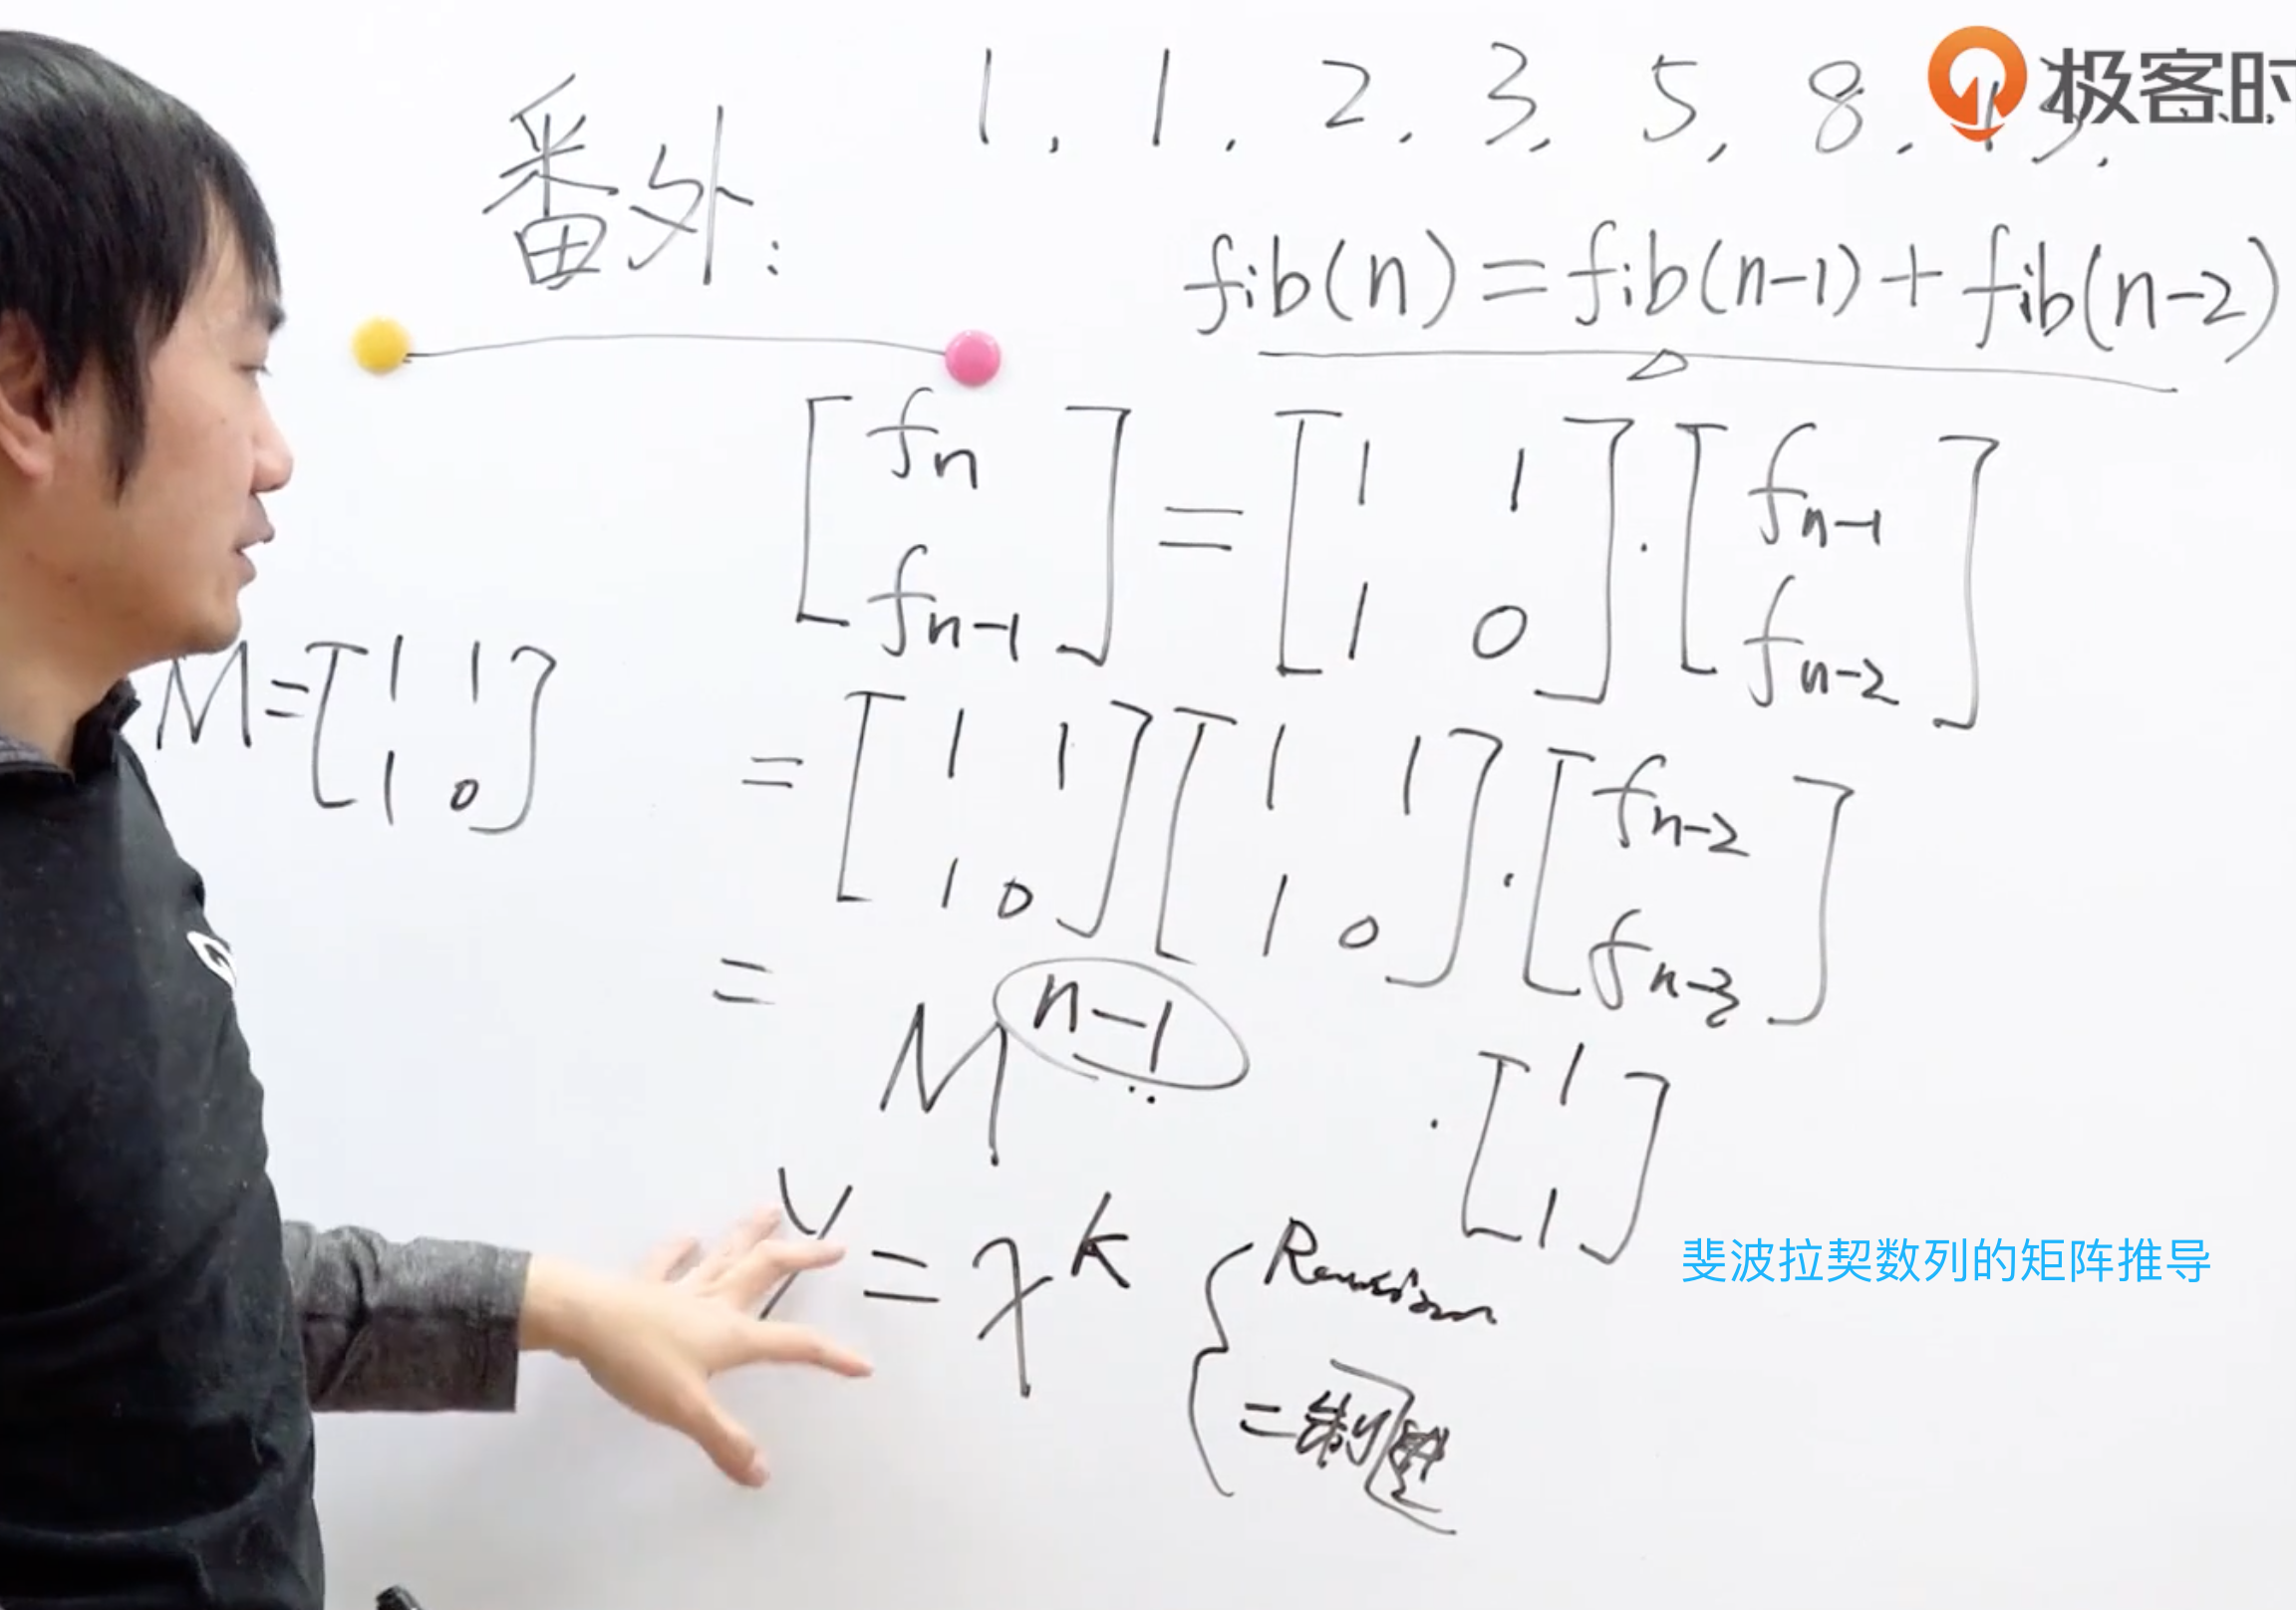 极客时
1, 1, 2, 3, 5, 8, 13,
番外:
fib(n) = fib(n-1) + fib(n-2)
[fn fn-1] = [1 1 1 0] · [fn-1 fn-2]
M = [1 1 1 0]
= [1 1 1 0] [1 1 1 0] · [fn-2 fn-3]
= M^n-1 · [1 1]
y = x^k
斐波拉契数列的矩阵推导